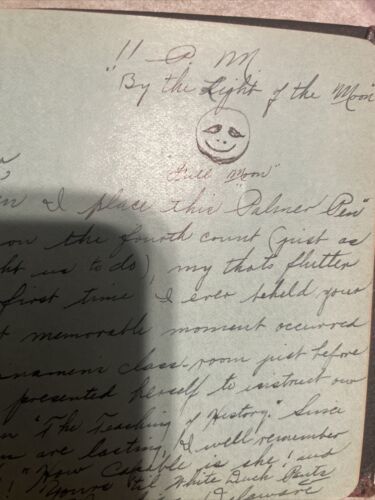 11 P. M
"By the Light of the Moon"
"Full Moon"
I place this Palmer Pen"
on the fourth count (just as
us to do), my thots flutter
first time I ever beheld your
memorable moment occurred
class-room just before
presented herself to instruct our
"The Teaching of History." Since
are lasting, I well remember
"How Capable is she! and
Yours 'til White Duck Pants
Delaware